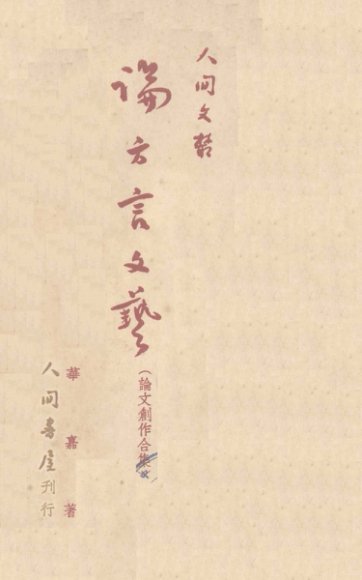 人間文叢
論方言文藝
(論文創作合集)
華嘉著
人間書屋刊行